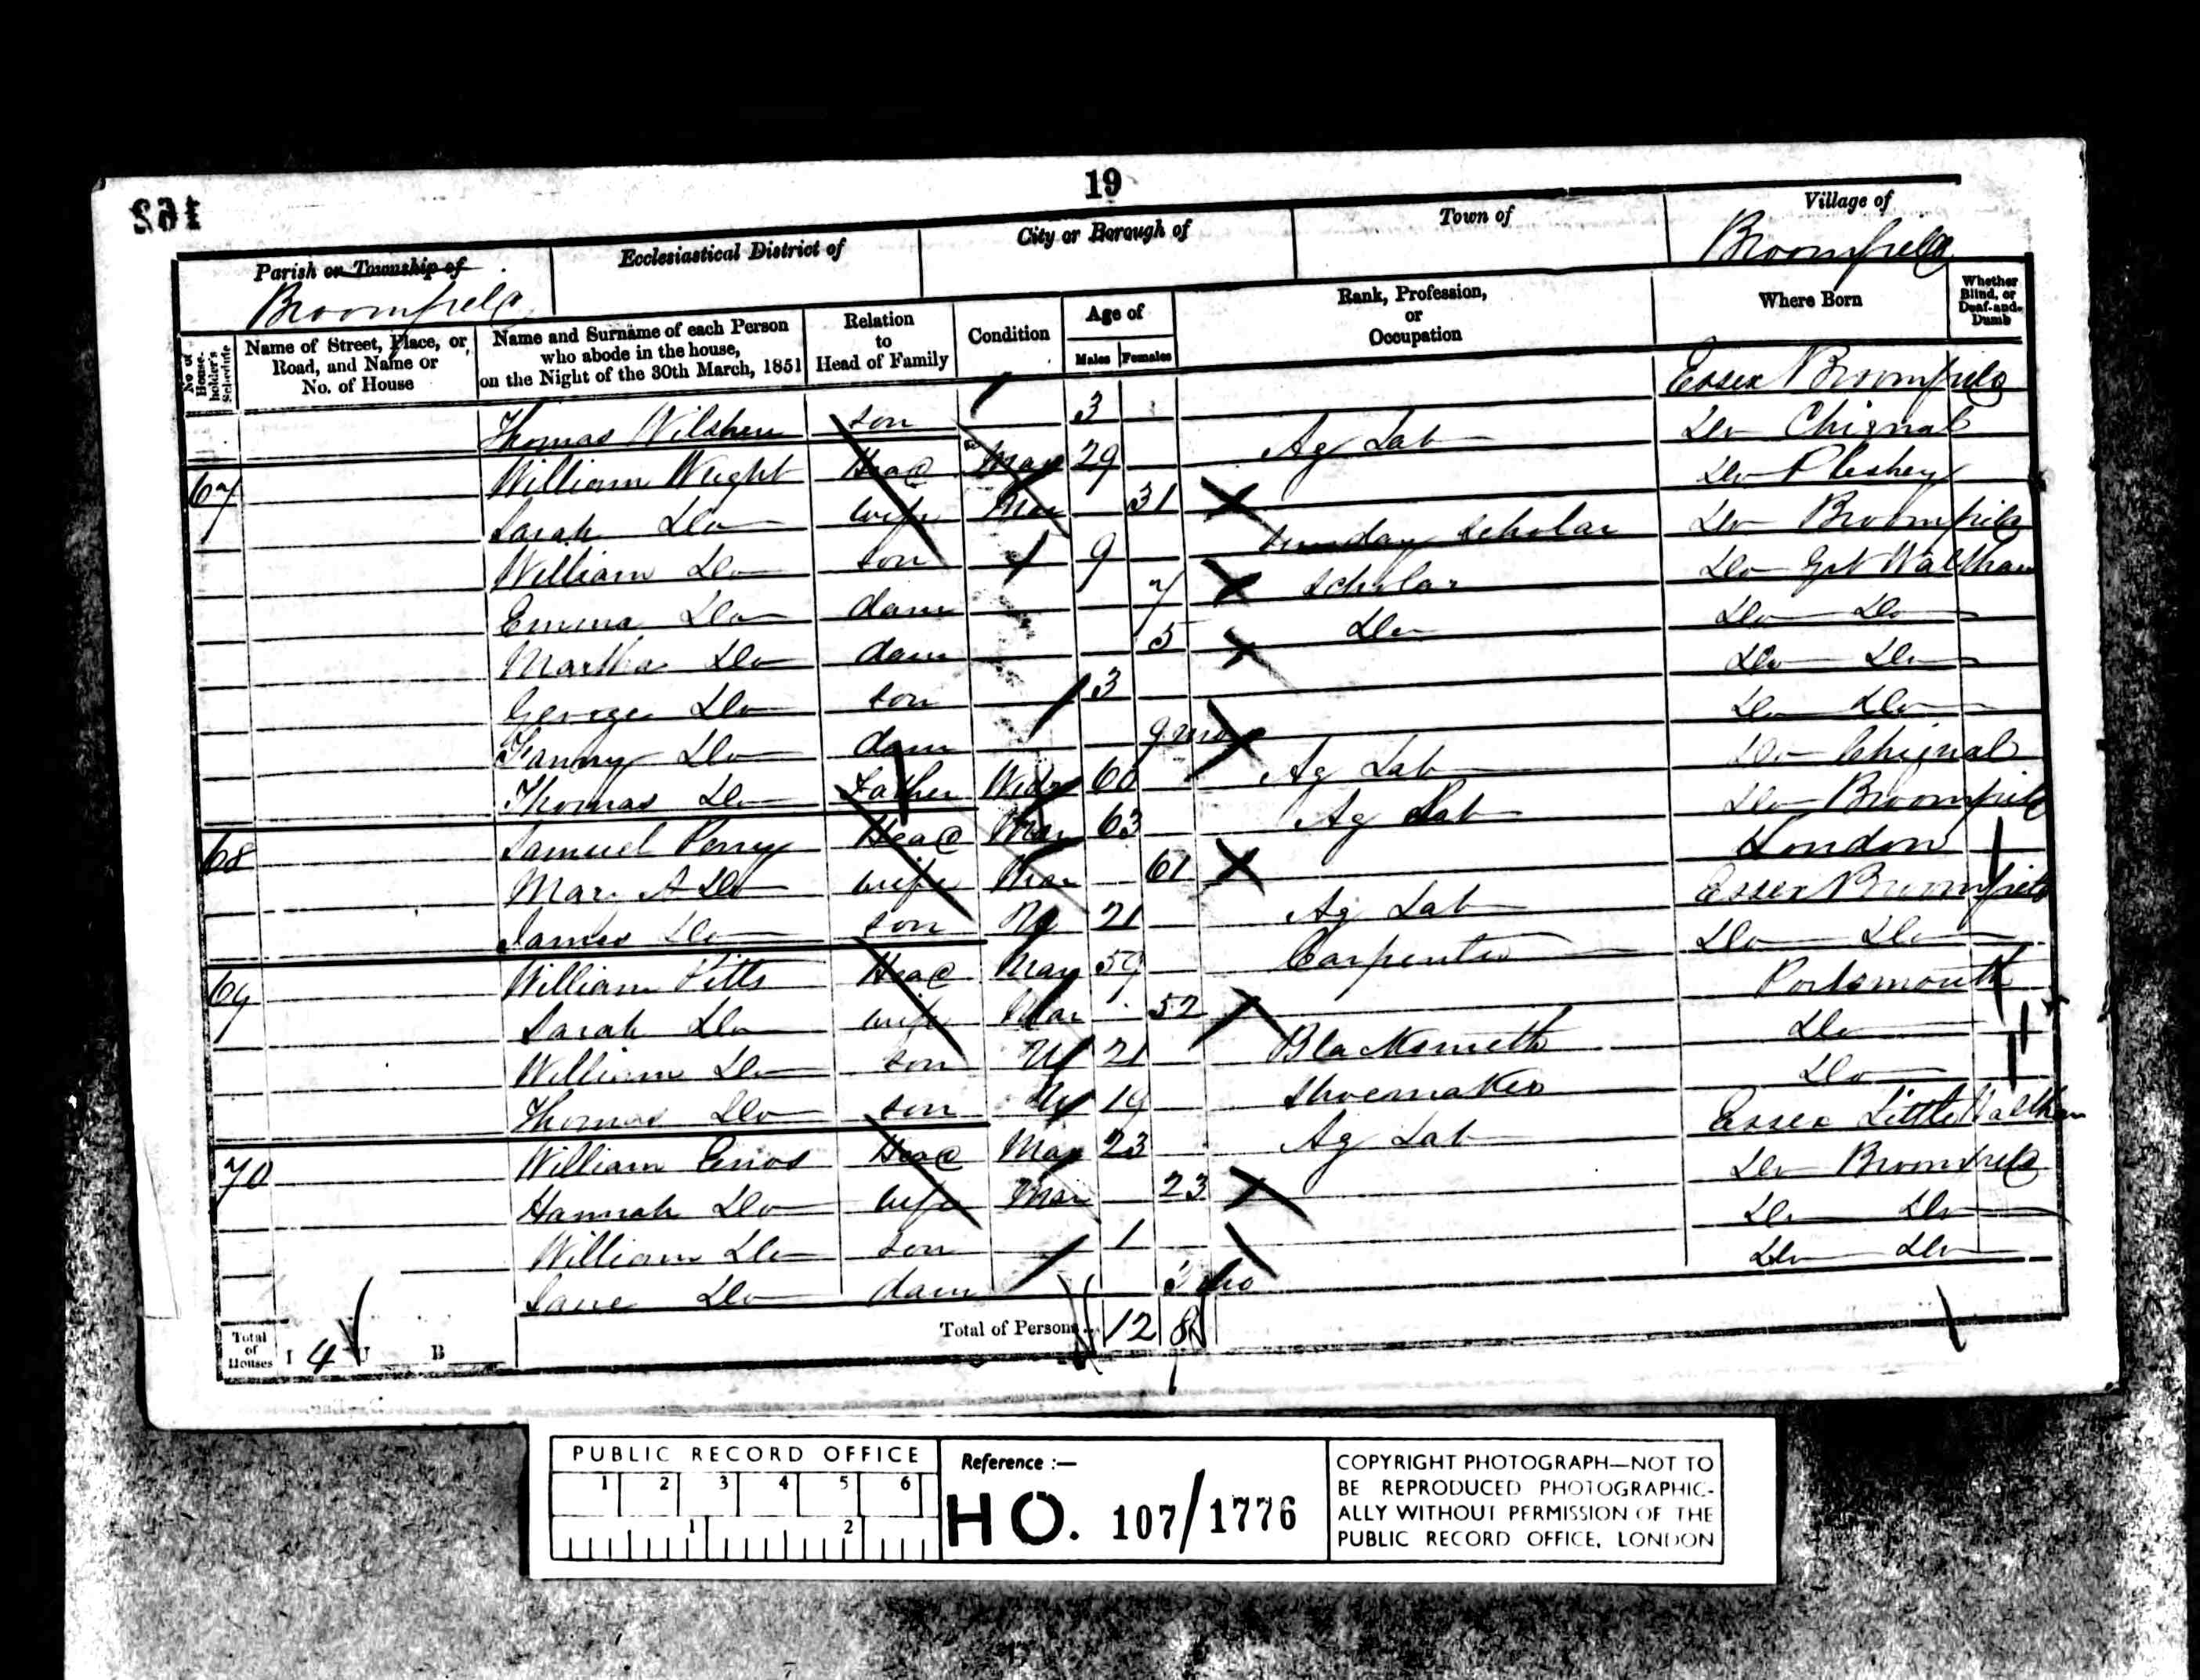 19
Parish or Township of
Broomfield
Ecclesiastical District of
City or Borough of
Town of
Village of
Broomfield
No of House-holder's Schedule
Name of Street, Place, or Road, and Name or No. of House
Name and Surname of each Person who abode in the house, on the Night of the 30th March, 1851
Relation to Head of Family
Condition
Age of
Males Females
Rank, Profession, or Occupation
Where Born
Whether Blind, or Deaf-and-Dumb
Thomas son 3 Essex Broomfield
67 William Head Mar 29 Ag Lab Do Chignal
Sarah Do wife Mar 31 Do Pleshey
William Do son 9 Sunday Scholar Do Broomfield
Emma Do daur 7 Scholar Do Grt Waltham
Martha Do daur 5 Do Do Do
George Do son 3 Do Do
Fanny Do daur 9 mo Do Do
Thomas Do Father Widr 60 Ag Lab Do Chignal
68 Samuel Perry Head Mar 63 Ag Lab Do Broomfield
Mary A Do wife Mar 61 London
James Do son U 21 Ag Lab Essex Broomfield
69 William Pitts Head Mar 59 Carpenter Do Do
Sarah Do wife Mar 52 Portsmouth
William Do son U 21 Blacksmith Do
Thomas Do son U 19 Shoemaker Do
70 William Enos Head Mar 23 Ag Lab Essex Little Waltham
Hannah Do wife Mar 23 Do Broomfield
William Do son 1 Do Do
Jane Do daur mo Do Do
Total of Houses I 4 U B
Total of Persons 12 8
PUBLIC RECORD OFFICE
1 2 3 4 5 6
1 2
Reference :—
HO. 107/1776
COPYRIGHT PHOTOGRAPH—NOT TO
BE REPRODUCED PHOTOGRAPHIC-
ALLY WITHOUT PERMISSION OF THE
PUBLIC RECORD OFFICE, LONDON